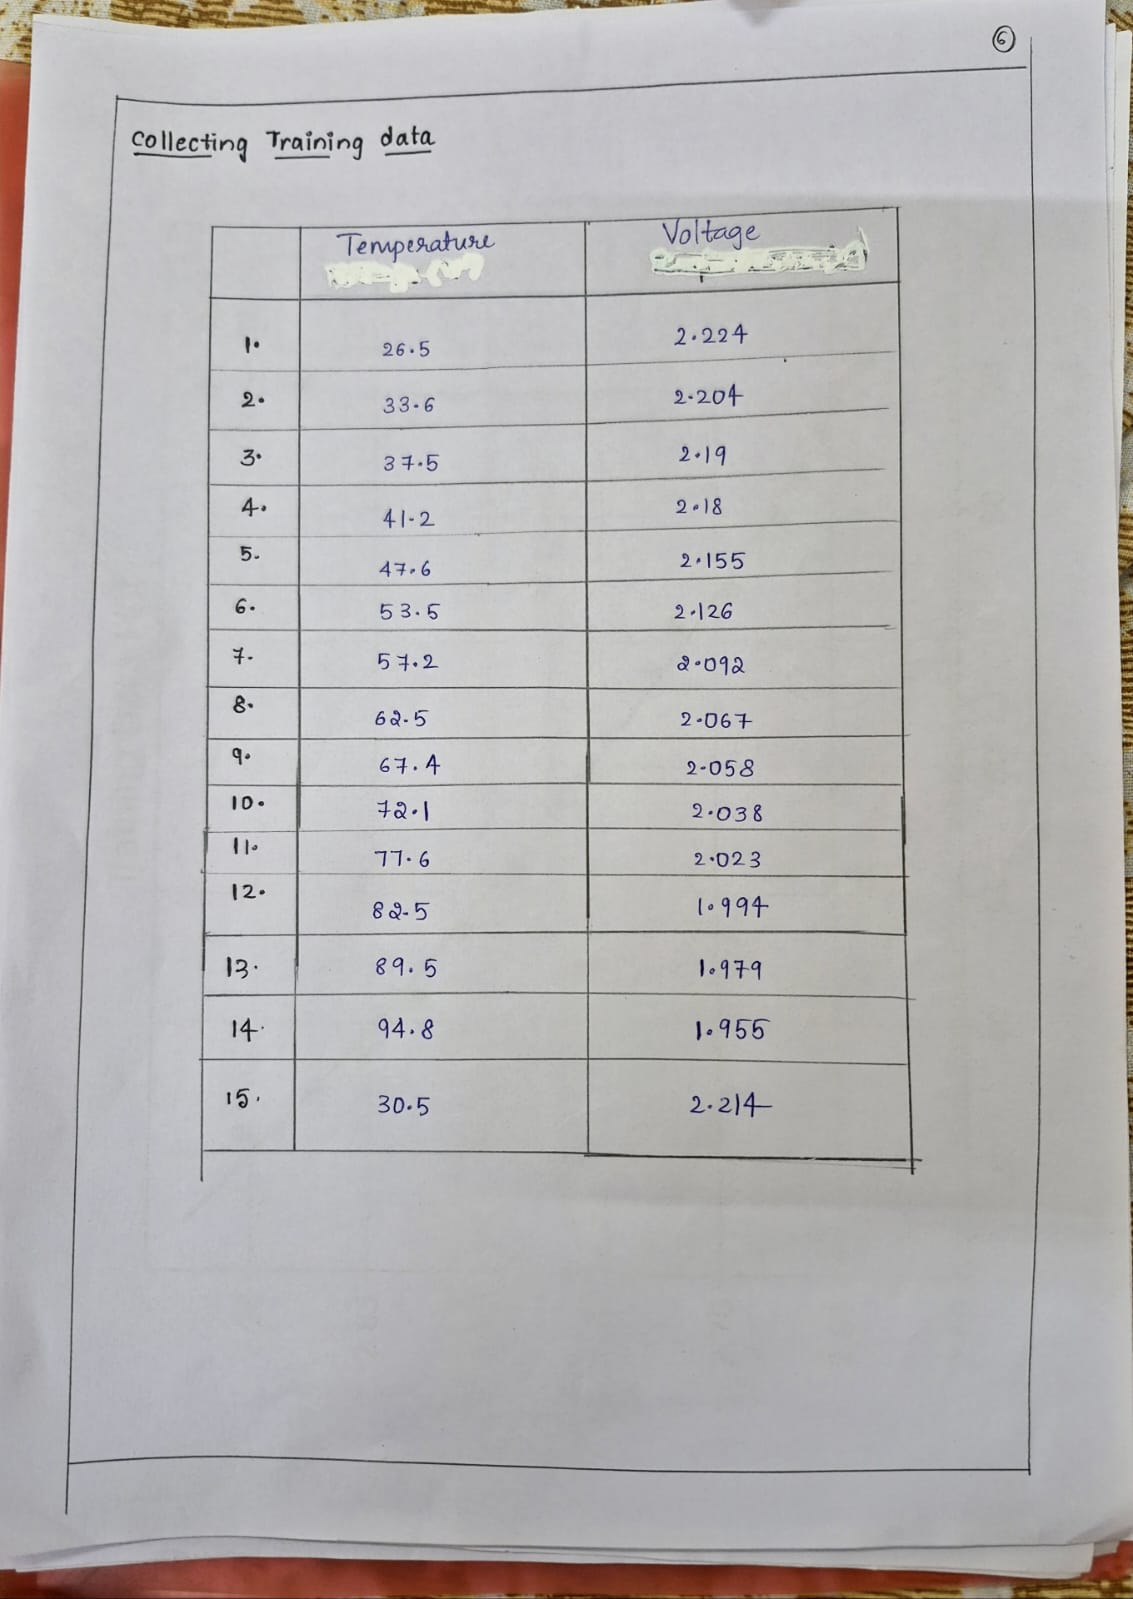 6
Collecting Training data
Temperature Voltage
1. 26.5 2.224
2. 33.6 2.204
3. 37.5 2.19
4. 41.2 2.18
5. 47.6 2.155
6. 53.5 2.126
7. 57.2 2.092
8. 62.5 2.067
9. 67.4 2.058
10. 72.1 2.038
11. 77.6 2.023
12. 82.5 1.994
13. 89.5 1.979
14. 94.8 1.955
15. 30.5 2.214